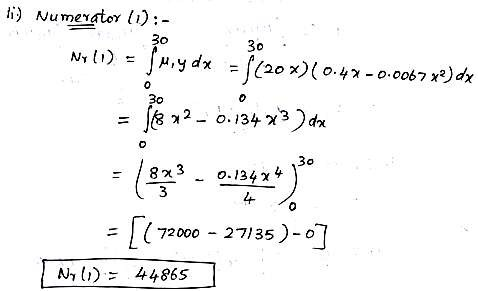 ii) Numerator (1) :-
Nr(1) = ∫₀³⁰ μ₁y dx = ∫₀³⁰ (20x)(0.4x - 0.0067x²) dx
= ∫₀³⁰ (8x² - 0.134x³) dx
= (8x³/3 - 0.134x⁴/4)₀³⁰
= [(72000 - 27135) - 0]
Nr(1) = 44865